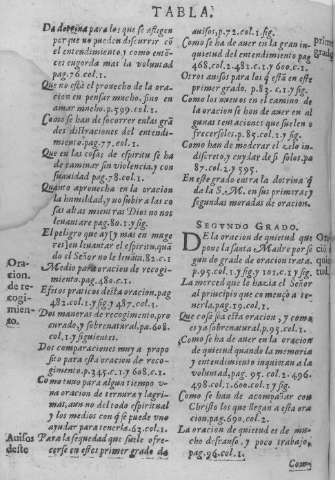 TABLA.
Da dotrina para los que se afligen
por que no pueden discurrir cõ
el entendimiento y como entõ-
ces engorda mas la voluntad
pag.76.col.1.
Que no está el provecho de la oracion
en pensar mucho, sino en
amar mucho. p.599.col.1.
Como se han de socorrer en las grã
des distracciones del entendi-
miento. pag.77.col.1.
Que en las cosas de espiritu se ha
de caminar sin violencia, y con
suavidad pag.78.col.1.
Quanto aprovecha en la oracion
la humildad, y no subir a las co
sas altas mientras Dios no nos
levantare pag.80.1.y sig.
El peligro que ay (y mas en mug
eres) en levantar el espiritu, quã
do el Señor no le levãta. 82.c.1
Oracion. de recogimiento.
Medio para oracion de recogi-
miento, pag.480.c.1.
Efetos praticos desta oracion, pag
482.col.1.y sig. y 487.col.1.
Dos maneras de recogimiento, pro
curado, y sobrenatural, pa.608.
col.1.y siguientes.
Dos comparaciones muy a propo
sito para esta oracion de reco-
gimiento. p.345.c.1.y 608.c.1.
Como tuvo para algun tiempo v
na oracion de ternura y lagri-
mas, aun no del todo espiritual
y los medios con q̃ se puede
ayudar para tenerla. 63.col.1.
Avisos desto
Para la sequedad que suele ofre-
cerse en este primer grado da
avisos, p.72.col.1.sig.
primer grado
Como se ha de aver en la gran in
quietud del entendimiento pag
468.col.2.481.c.1.y 600.c.1.
Otros avisos para los q̃ estã en este
primer grado. p.83.c.1.y sig.
Como los nuevos en el camino de
la oracion se han de aver en al
gunas tentaciones que suelen o
frecerseles. p.85.col.1.y sig.
Como han de moderar el zelo in-
discreto, y cuydar de si solos. pa.
87.col.1.y 595.
En este grado entra la dotrina q̃
da la S.M. en sus primeras y
segundas moradas de oracion.
SEGUNDO GRADO.
DE la oracion de quietud que
pone la santa Madre por se
gundo grado de oracion trata.
p.95.col.1.y sig. y 101.c.1.y sig.
La merced que le hazia el Señor
al principio que començò a te-
nerla, pag.19.col.1.
Que cosa sea esta oracion, y como
es ya sobrenatural, p.95.col.1.
Como se ha de aver en la oracion
de quietud quando la memoria
y entendimiento inquietan a la
voluntad, pag.95. col.2.496.
498.col.1.600.col.1.y sig.
Como se han de acompañar con
Christo los que llegan a esta ora
cion, pag.690.col.2.
La oracion de quietud es de mu-
cho descanso, y poco trabajo,
pag.96.col.1.
Como